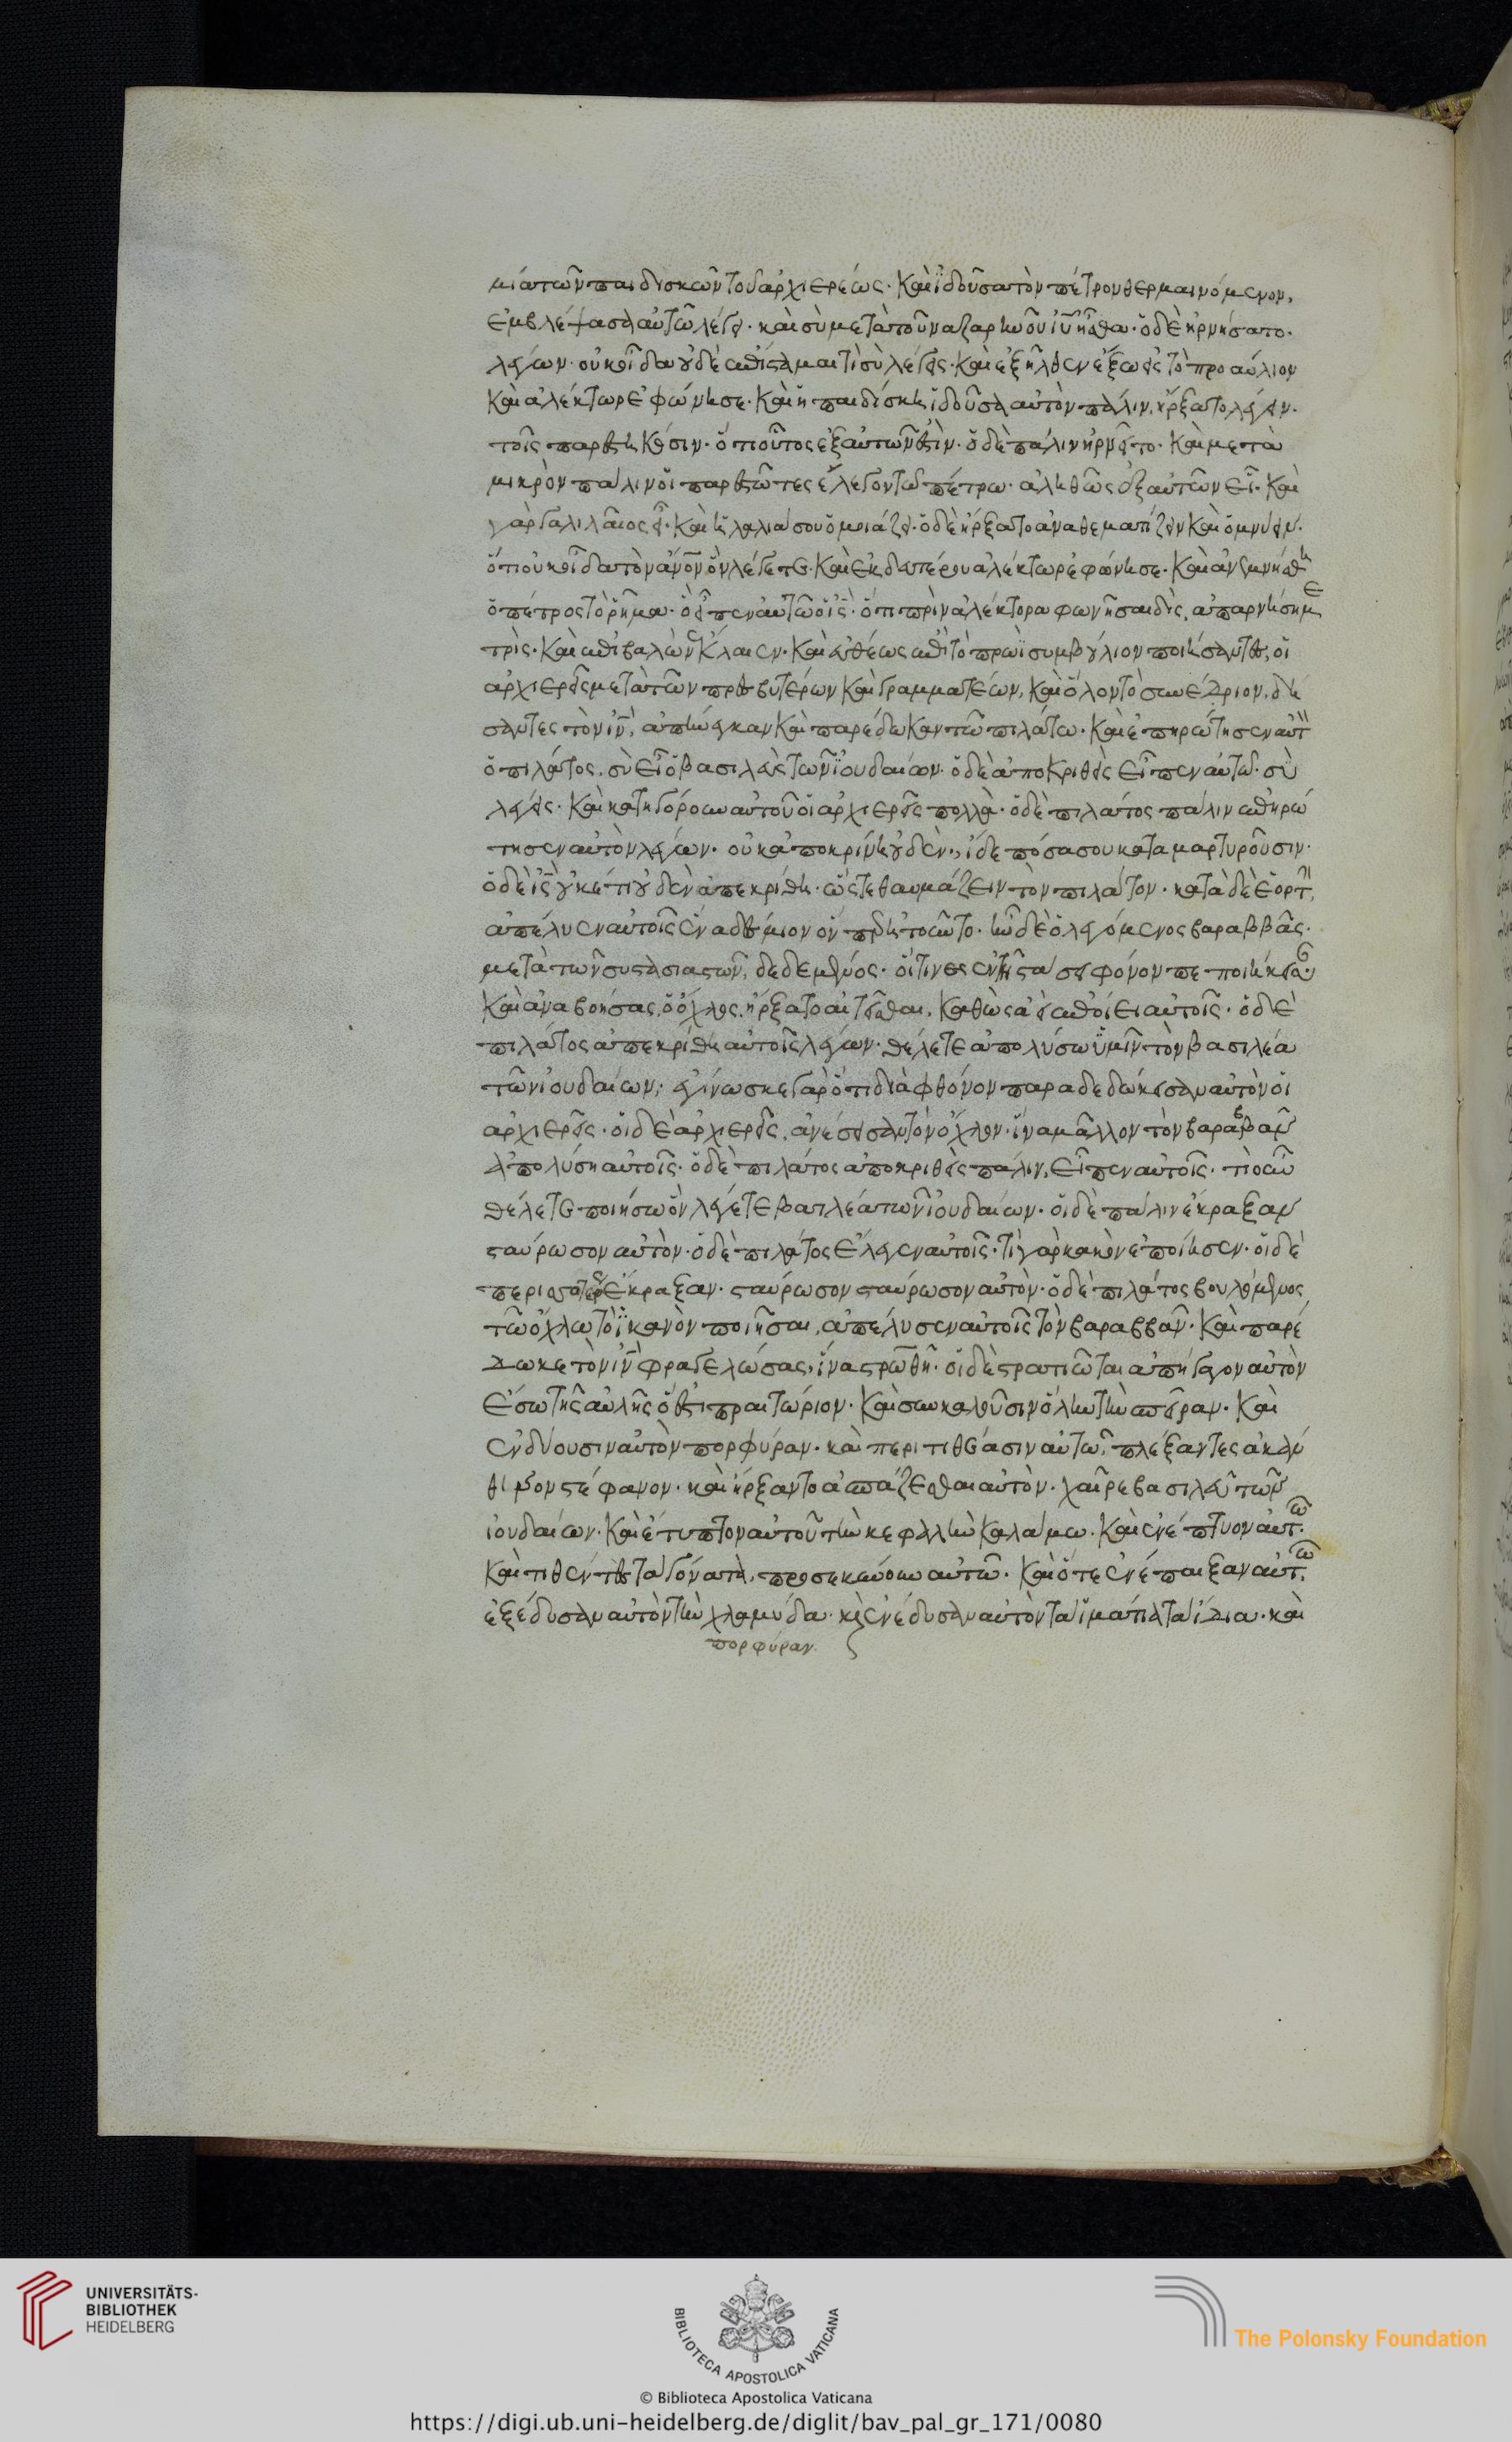 μία τῶν παιδισκῶν τοῦ ἀρχιερέως· καὶ ἰδοῦσα τὸν πέτρον θερμαινόμενον,
ἐμβλέψασα αὐτῶ λέγει· καὶ σὺ μετὰ τοῦ ναζαρηνοῦ ἰῦ ἦσθα· ὁ δὲ ἠρνήσατο·
λέγων· οὐκ οἶδα οὐδὲ ἐπίσταμαι τί σὺ λέγεις· καὶ ἐξῆλθεν ἔξω εἰς τὸ προαύλιον
καὶ ἀλέκτωρ ἐφώνησε· καὶ ἡ παιδίσκη ἰδοῦσα αὐτὸν πάλιν, ἤρξατο λέγειν·
τοῖς παρεστηκόσιν· ὅτι οὗτος ἐξ αὐτῶν ἐστίν· ὁ δὲ πάλιν ἠρνεῖτο· καὶ μετὰ
μικρὸν πάλιν οἱ παρεστῶτες ἔλεγον τῶ πέτρω· ἀληθῶς ἐξ αὐτῶν εἶ· καὶ
γὰρ γαλιλαῖος εἶ· καὶ ἡ λαλιά σου ὁμοιάζει· ὁ δὲ ἤρξατο ἀναθεματίζειν καὶ ὀμνύειν·
ὅτι οὐκ οἶδα τὸν ἄνον ὃν λέγετε· καὶ ἐκ δευτέρου ἀλέκτωρ ἐφώνησε· καὶ ἀνεμνήσθη
ὁ πέτρος τὸ ῥῆμα· ὃ εἶπεν αὐτῶ ὁ ἰς· ὅτι πρὶν ἀλέκτορα φωνῆσαι δὶς, ἀπαρνήσῃ με
τρὶς· καὶ ἐπιβαλὼν ἔκλαιεν· καὶ εὐθέως ἐπὶ τὸ πρωῒ συμβούλιον ποιήσαντες, οἱ
ἀρχιερεῖς μετὰ τῶν πρεσβυτέρων καὶ γραμματέων, καὶ ὅλον τὸ συνέδριον, δή
σαντες τὸν ἰν, ἀπήνεγκαν καὶ παρέδωκαν τῶ πιλάτω· καὶ ἐπηρώτησεν αὐτὸν
ὁ πιλάτος, σὺ εἶ ὁ βασιλεὺς τῶν ἰουδαίων· ὁ δὲ ἀποκριθεὶς εἶπεν αὐτῶ· σὺ
λέγεις· καὶ κατηγόρουν αὐτοῦ οἱ ἀρχιερεῖς πολλὰ· ὁ δὲ πιλάτος πάλιν ἐπηρώ
τησεν αὐτὸν λέγων· οὐκ ἀποκρίνη οὐδέν· ἴδε πόσα σου καταμαρτυροῦσιν·
ὁ δὲ ἰς οὐκέτι οὐδὲν ἀπεκρίθη· ὥστε θαυμάζειν τὸν πιλάτον· κατὰ δὲ ἑορτὴν,
ἀπέλυεν αὐτοῖς ἕνα δέσμιον ὃν περ ἠτοῦντο· ἦν δὲ ὁ λεγόμενος βαραββᾶς·
μετὰ τῶν συστασιαστῶν, δεδεμένος· οἵτινες ἐν τῆ στάσει φόνον πεποιήκεισαν·
καὶ ἀναβοήσας, ὁ ὄχλος, ἤρξατο αἰτεῖσθαι, καθὼς ἀεὶ ἐποίει αὐτοῖς· ὁ δὲ
πιλάτος ἀπεκρίθη αὐτοῖς λέγων· θέλετε ἀπολύσω ὑμῖν τὸν βασιλέα
τῶν ἰουδαίων; ἐγίνωσκε γὰρ ὅτι διὰ φθόνον παραδεδώκεισαν αὐτὸν οἱ
ἀρχιερεῖς· οἱ δὲ ἀρχιερεῖς, ἀνέσεισαν τὸν ὄχλον· ἵνα μᾶλλον τὸν βαραββαν
ἀπολύση αὐτοῖς· ὁ δὲ πιλάτος ἀποκριθεὶς πάλιν, εἶπεν αὐτοῖς· τί οὖν
θέλετε ποιήσω ὃν λέγετε βασιλέα τῶν ἰουδαίων· οἱ δὲ πάλιν ἔκραξαν
σταύρωσον αὐτὸν· ὁ δὲ πιλάτος ἔλεγεν αὐτοῖς· τί γὰρ κακὸν ἐποίησεν· οἱ δὲ
περισσοτέρως ἔκραξαν· σταύρωσον σταύρωσον αὐτὸν· ὁ δὲ πιλάτος βουλόμενος
τῶ ὄχλω τὸ ἱκανὸν ποιῆσαι, ἀπέλυσεν αὐτοῖς τὸν βαραββαν· καὶ παρέ
δωκε τὸν ἰν φραγελώσας, ἵνα στρωθῆ· οἱ δὲ στρατιῶται ἀπήγαγον αὐτὸν
ἔσω τῆς αὐλῆς ὅ ἐστι πραιτώριον· καὶ συγκαλοῦσιν ὅλην τὴν σπεῖραν· καὶ
ἐνδύουσιν αὐτὸν πορφύραν· καὶ περιτιθέασιν αὐτῶ, πλέξαντες ἀκάν
θινον στέφανον· καὶ ἤρξαντο ἀσπάζεσθαι αὐτὸν· χαῖρε βασιλεῦ τῶν
ἰουδαίων· καὶ ἔτυπτον αὐτοῦ τὴν κεφαλὴν καλάμω· καὶ ἐνέπτυον αὐτῶ·
καὶ τιθέντες τὰ γόνατα, προσεκύνουν αὐτῶ· καὶ ὅτε ἐνέπαιξαν αὐτῶ,
ἐξέδυσαν αὐτὸν τὴν χλαμύδα· καὶ ἐνέδυσαν αὐτὸν τὰ ἱμάτια τὰ ἴδια· καὶ
πορφύραν.
UNIVERSITÄTS-
BIBLIOTHEK
HEIDELBERG
BIBLIOTECA APOSTOLICA VATICANA
The Polonsky Foundation
© Biblioteca Apostolica Vaticana
https://digi.ub.uni-heidelberg.de/diglit/bav_pal_gr_171/0080